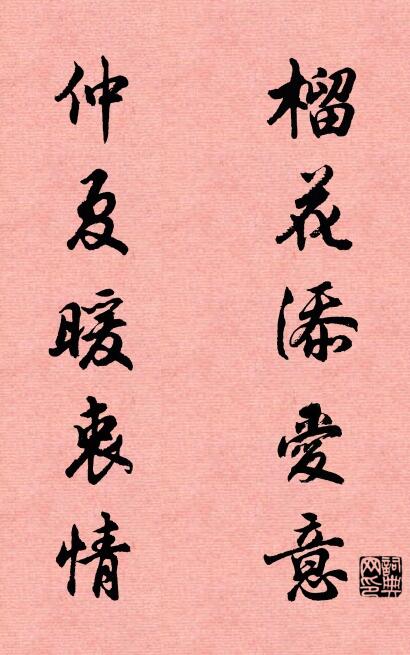 榴花添愛意
仲夏暖衷情
詞典网印